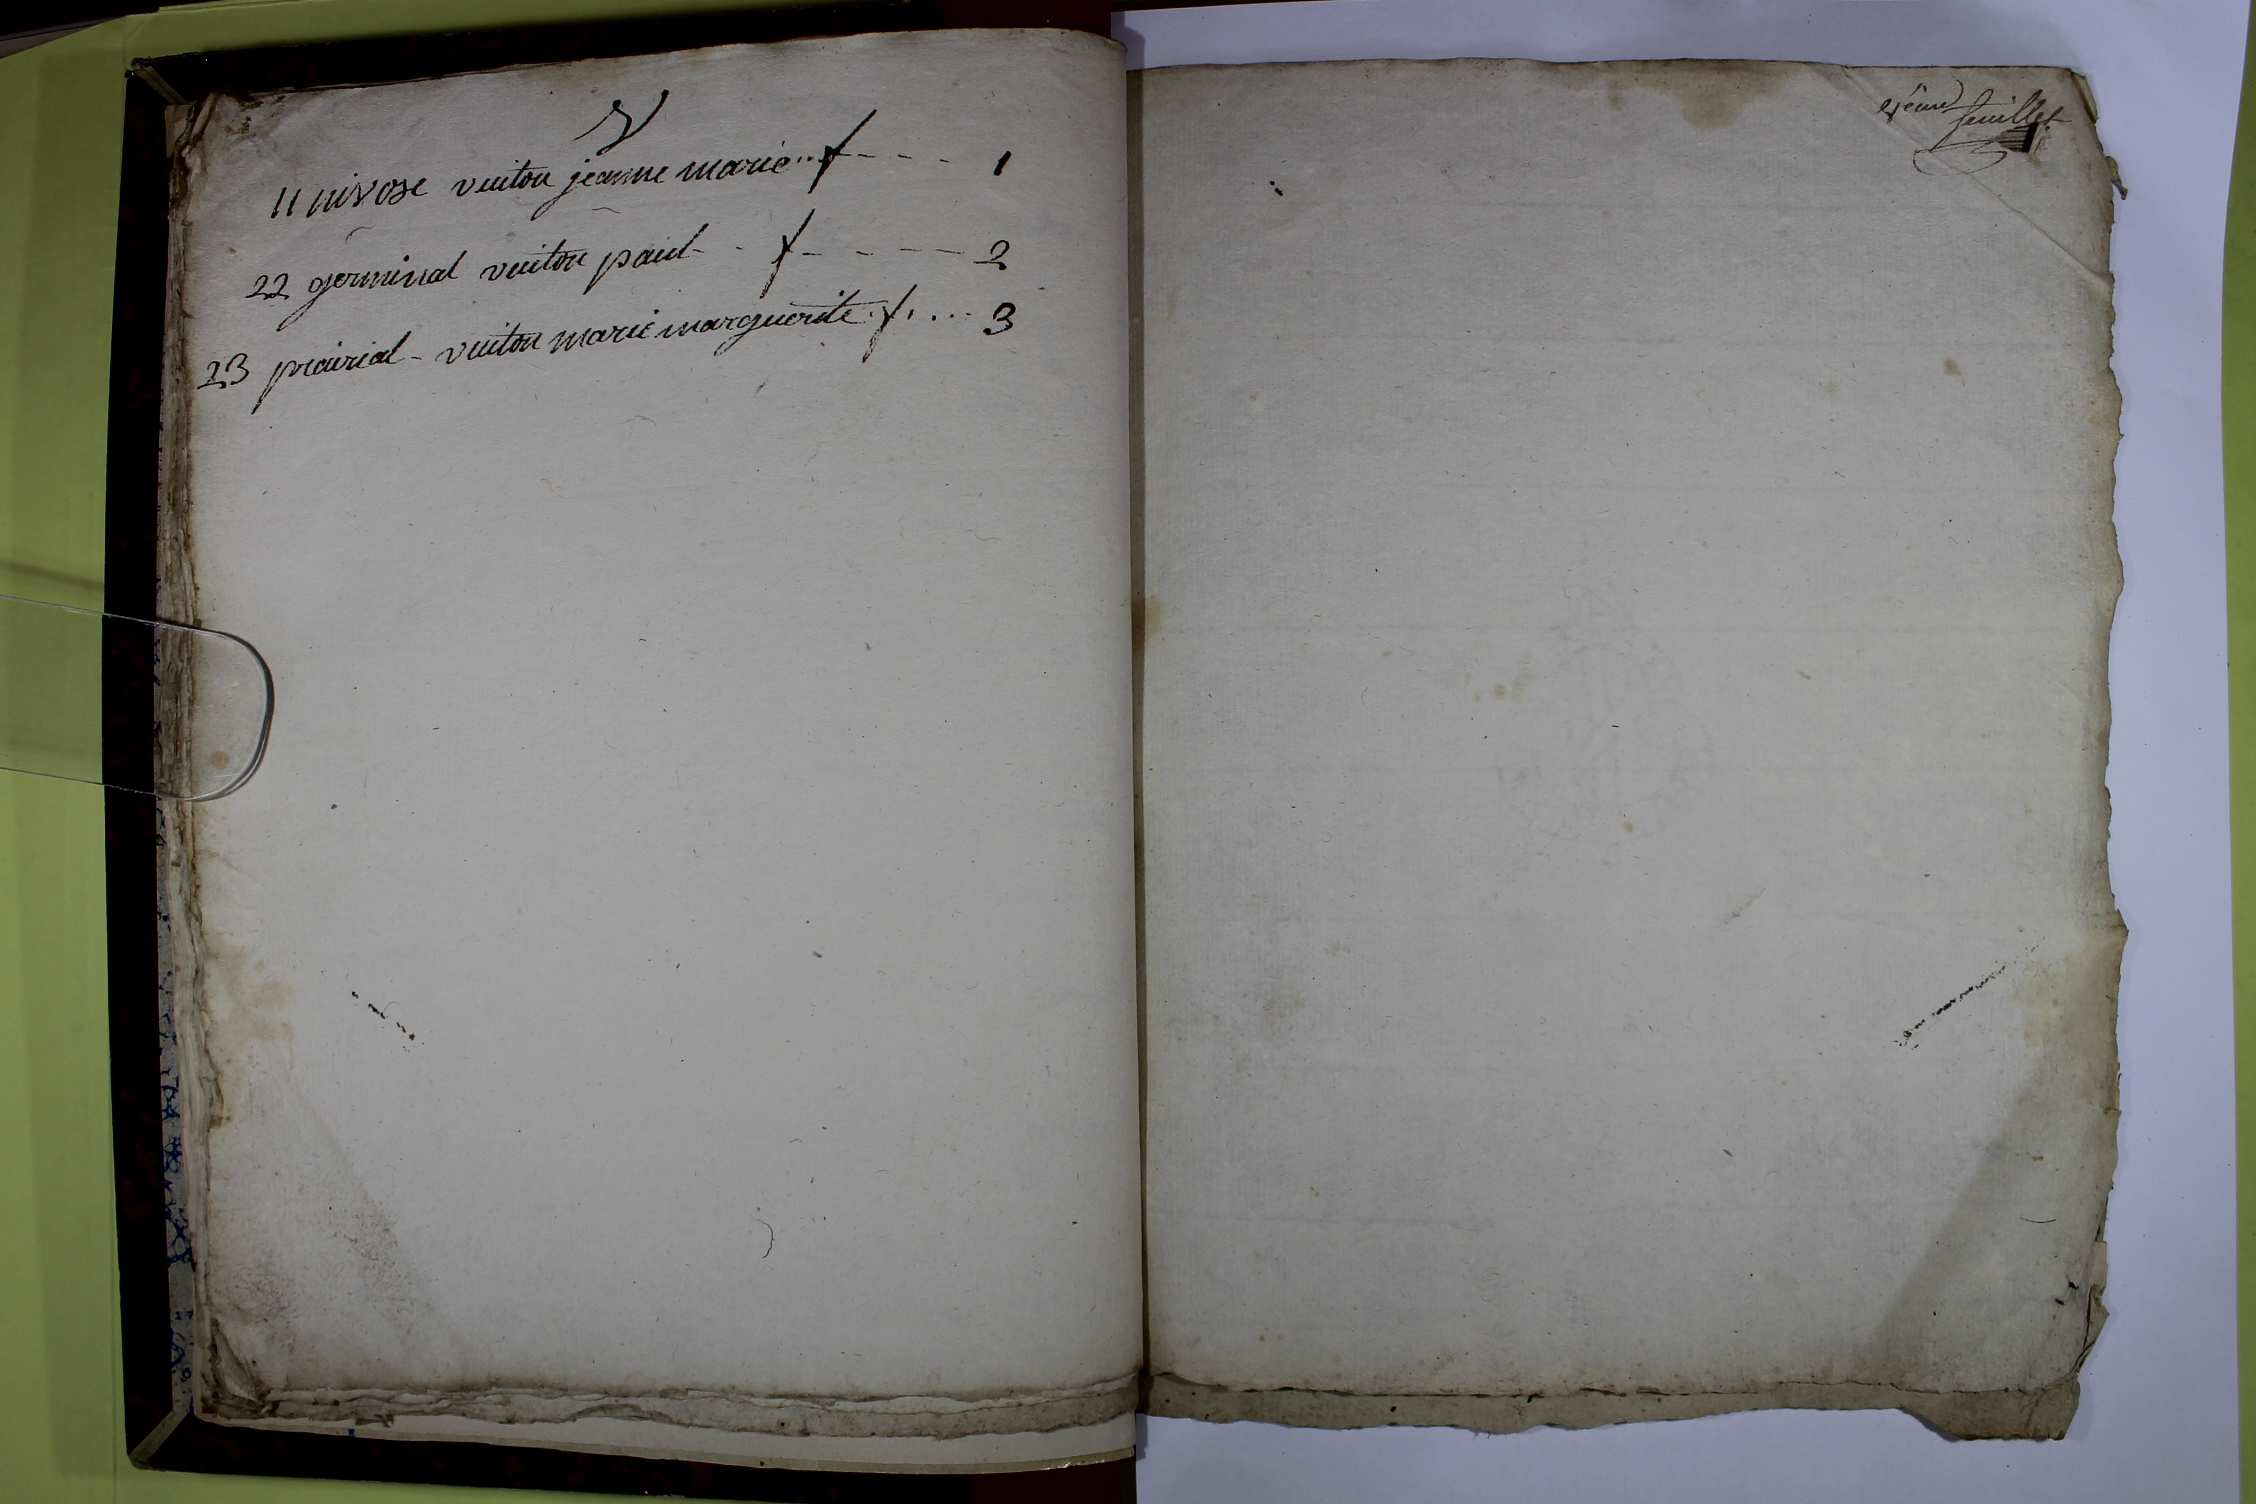 V
11 nivose vuiton jeanne marie 1
22 germinal vuiton paul 2
23 prairial - vuiton marie marguerite 3
feuillet